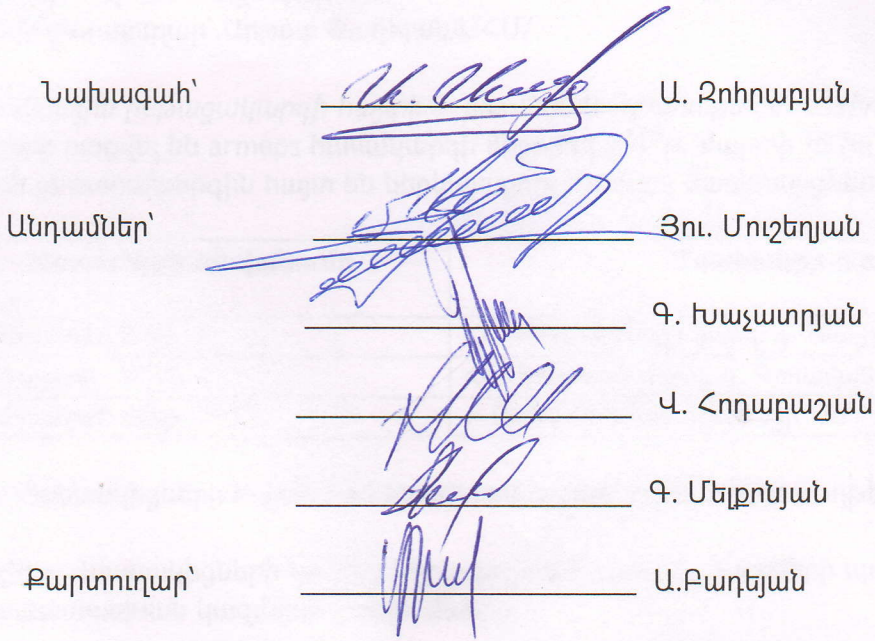 Նախագահ՝ Ա. Զոհրաբյան
Անդամներ՝ Յու. Մուշեղյան
Գ. Խաչատրյան
Վ. Հոդաբաշյան
Գ. Մելքոնյան
Քարտուղար՝ Ա.Բադեյան